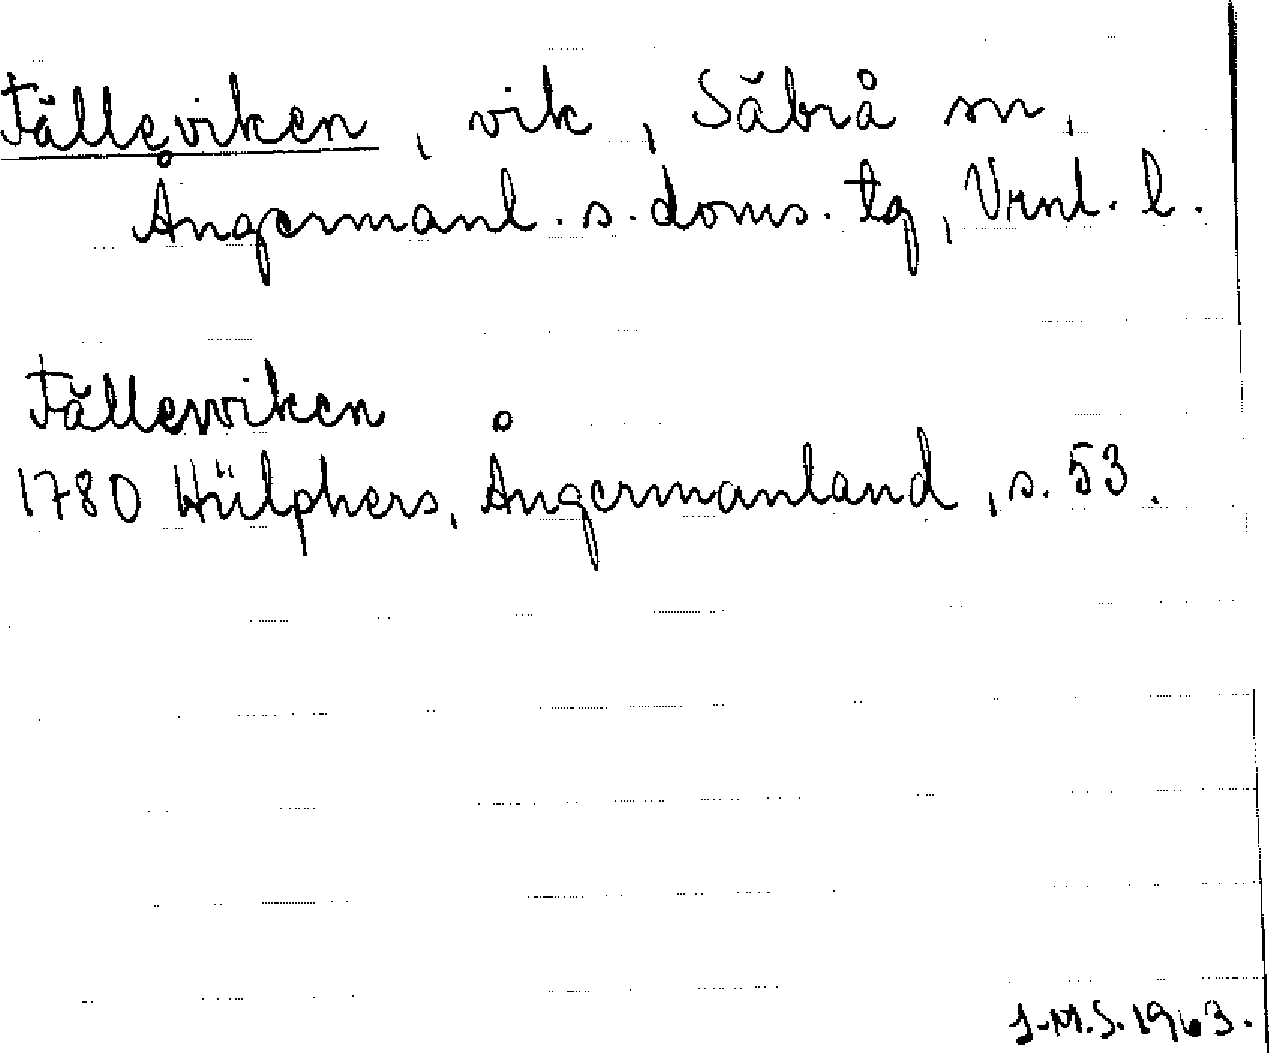 Fälleviken, vik, Säbrå sn,
Ångermanl. s. doms. tg, Vrnl. l.
Fällerviken
1780 Hülphers, Ångermanland, s. 53.
J.M.S. 1963.